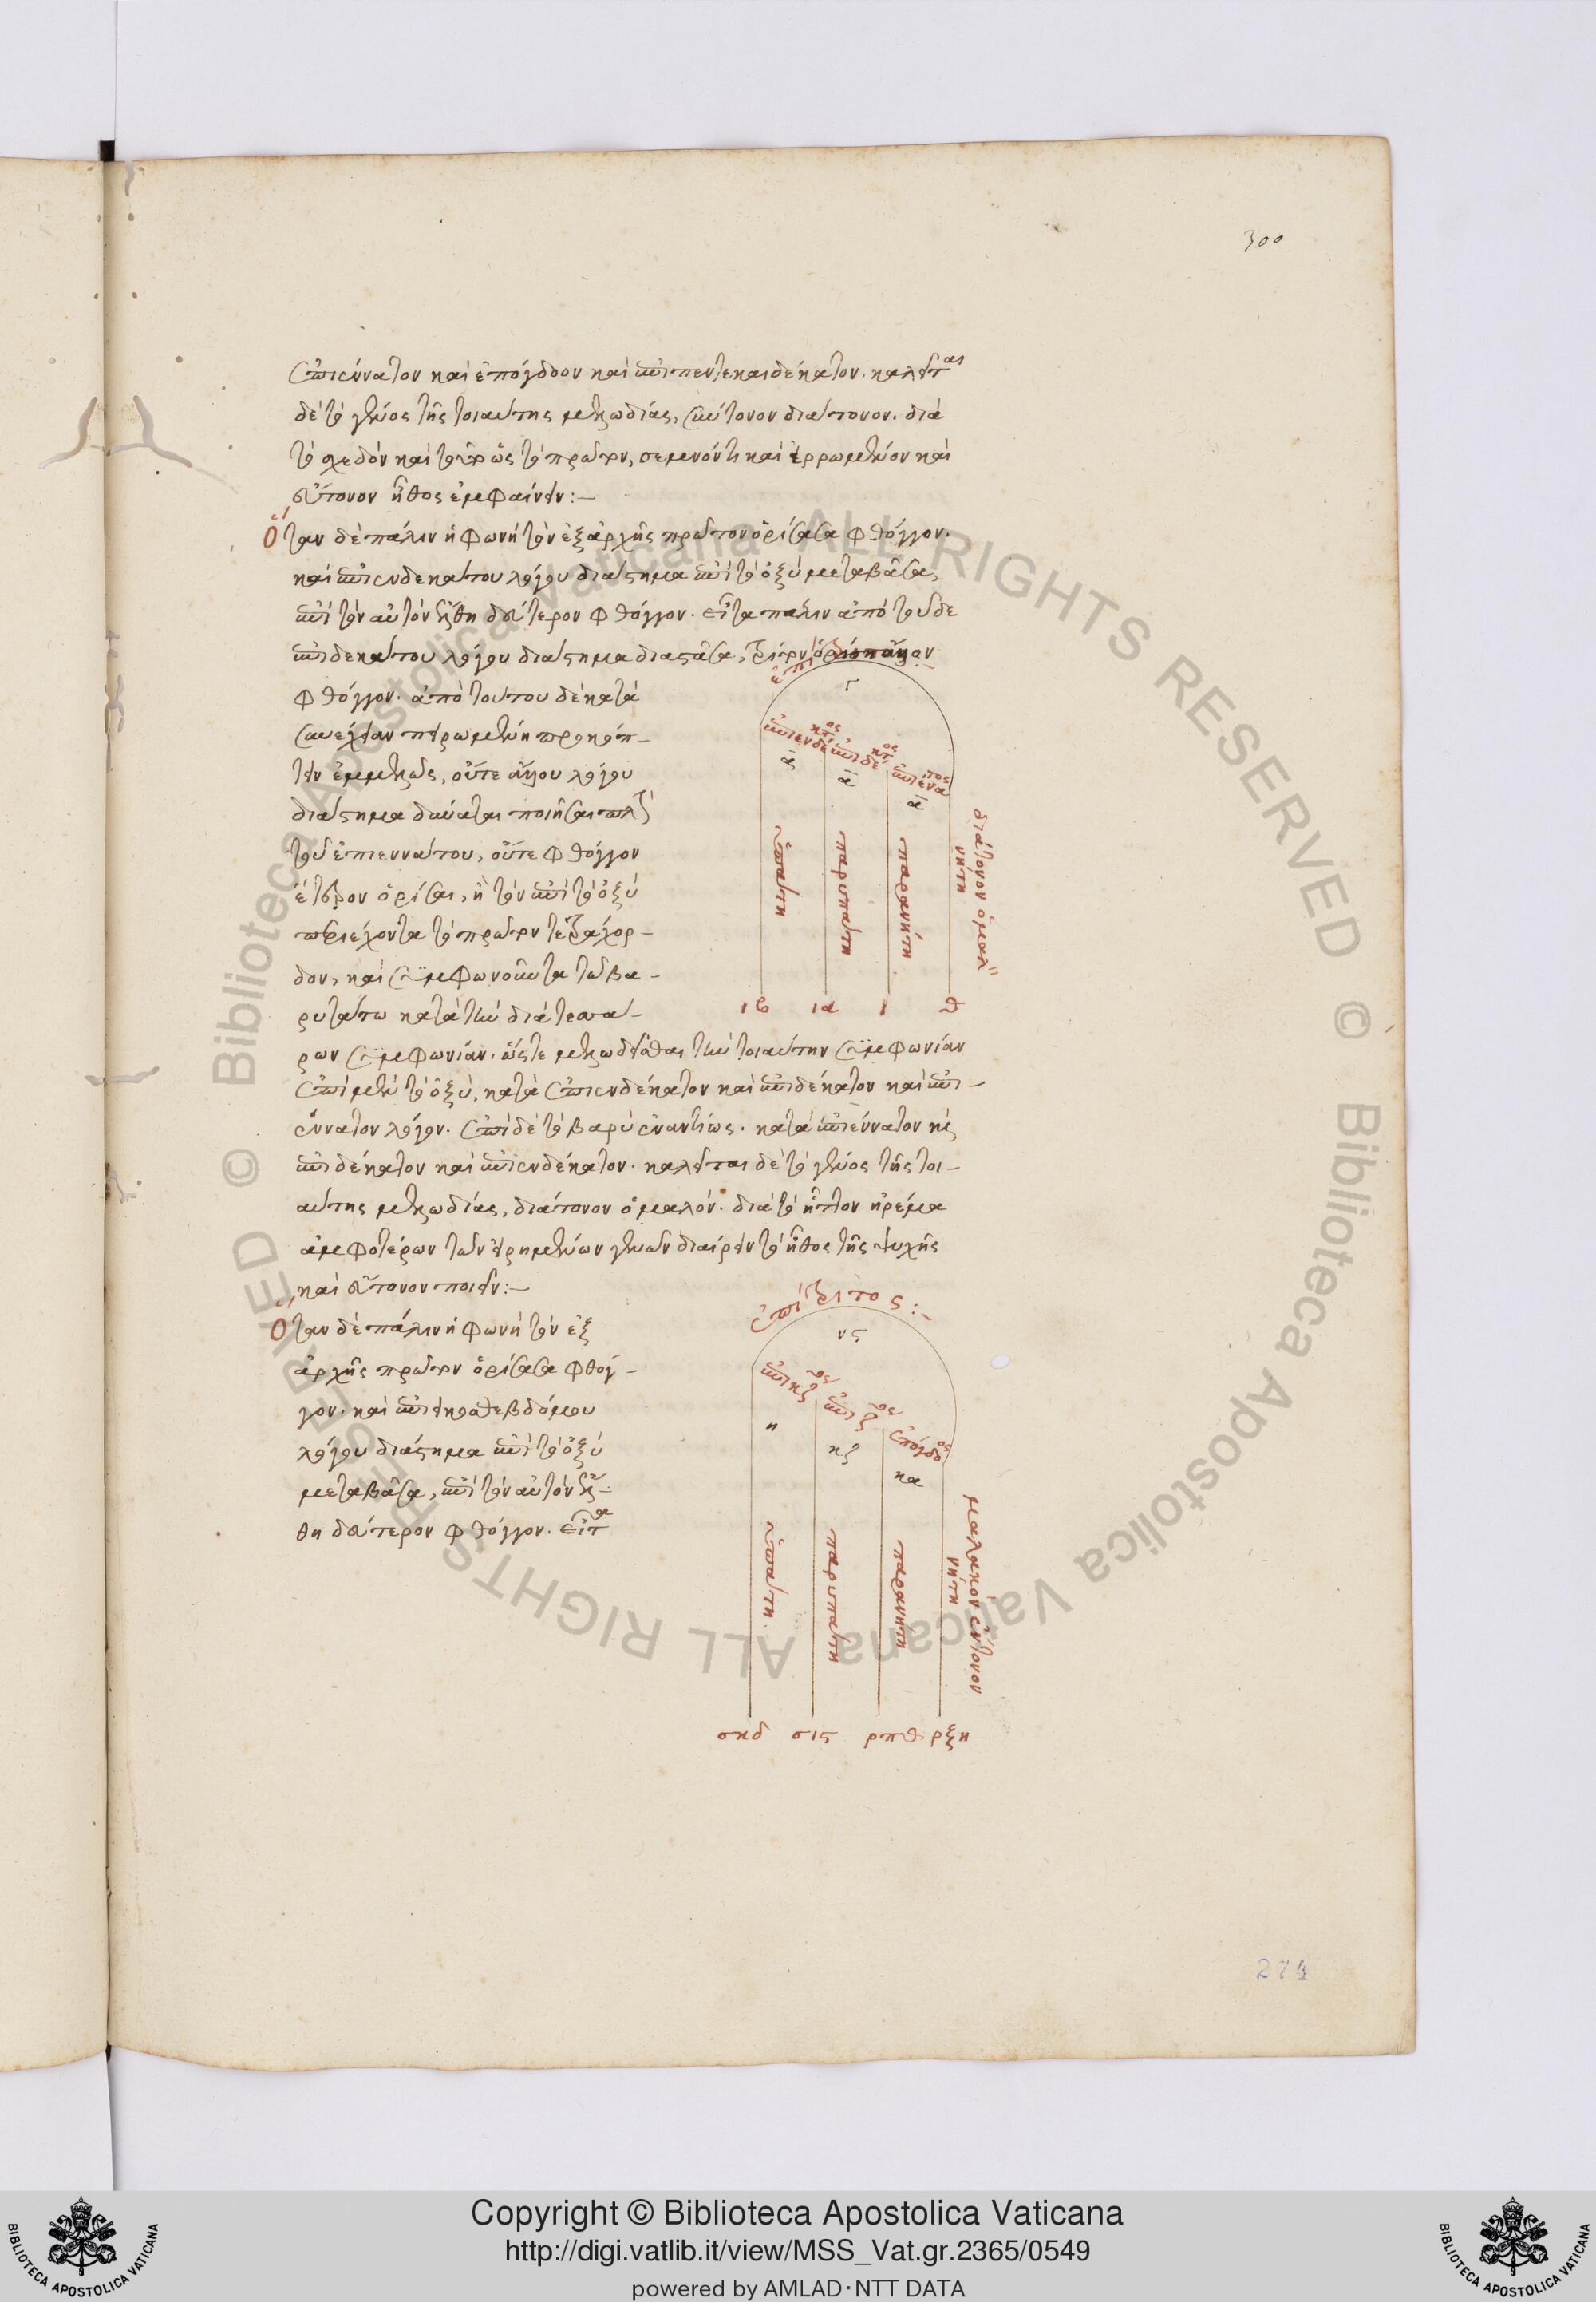 300
ἐπιέννατον καὶ ἐπόγδοον καὶ ἐπιπεντεκαιδέκατον. καλεῖται
δὲ τὸ γένος τῆς τοιαύτης μελῳδίας, σύντονον διάτονον. διὰ
τὸ σχεδὸν καὶ τὸ πρῶτον, σεμνόν τι καὶ ἐρρωμένον καὶ
εὔτονον ἦθος ἐμφαίνειν:–
Ὅταν δὲ πάλιν ἡ φωνὴ τὸν ἐξ ἀρχῆς πρῶτον ὁρίσασα φθόγγον.
καὶ ἐπιενδεκάτου λόγου διάστημα ἐπὶ τὸ ὀξὺ μεταβᾶσα,
ἐπὶ τὸν αὐτὸν ἔλθῃ δεύτερον φθόγγον. εἶτα πάλιν ἀπὸ τοῦδε
ἐπιδεκάτου λόγου διάστημα διαστᾶσα, τρίτον
φθόγγον. ἀπὸ τούτου δὲ κατὰ
συνέχειαν πειρωμένη προκόπ–
τειν ἐμμελῶς, οὔτε ἄλλου λόγου
διάστημα δύναται ποιῆσαι πλὴν
τοῦ ἐπιεννάτου, οὔτε φθόγγον
ἕτερον ὁρίσαι, ἢ τὸν ἐπὶ τὸ ὀξὺ
περιέχοντα τὸ πρῶτον τετράχορ–
δον, καὶ συμφωνοῦντα τῷ βα–
ρυτάτῳ κατὰ τὴν διὰ τεσσά–
ρων συμφωνίαν. ὥστε μελῳδεῖσθαι τὴν τοιαύτην συμφωνίαν
ἐπὶ μὲν τὸ ὀξύ, κατὰ ἐπιενδέκατον καὶ ἐπιδέκατον καὶ ἐπι–
έννατον λόγον. ἐπὶ δὲ τὸ βαρὺ ἐναντίως. κατὰ ἐπιέννατον καὶ
ἐπιδέκατον καὶ ἐπιενδέκατον. καλεῖται δὲ τὸ γένος τῆς τοι–
αύτης μελῳδίας, διάτονον ὁμαλόν. διὰ τὸ ἧττον ἠρέμα
ἀμφοτέρων τῶν εἰρημένων γενῶν διαίρειν τὸ ἦθος τῆς ψυχῆς
καὶ εὔτονον ποιεῖν:–
Ὅταν δὲ πάλιν ἡ φωνὴ τὸν ἐξ
ἀρχῆς πρῶτον ὁρίσασα φθόγ–
γον. καὶ ἐπιεικοσθεβδόμου
λόγου διάστημα ἐπὶ τὸ ὀξὺ
μεταβᾶσα, ἐπὶ τὸν αὐτὸν ἔλ–
θῃ δεύτερον φθόγγον. εἶτα
γ
ἐπιενδέκατος
ἐπιδέκατος
ἐπιένατος
α α α
ὑπάτη
παρυπάτη
παρανήτη
νήτη
διάτονον ὁμαλὸν
ιβ ια ι θ
ἐπίτριτος:–
νς
ἐπικζος
ἐπιζος
ἐπόγδοος
η κζ κα
ὑπάτη
παρυπάτη
παρανήτη
νήτη
μαλακὸν ἔντονον
σκδ σις ρπθ ρξη
274
Copyright © Biblioteca Apostolica Vaticana
http://digi.vatlib.it/view/MSS_Vat.gr.2365/0549
powered by AMLAD·NTT DATA
BIBLIOTECA APOSTOLICA VATICANA
BIBLIOTECA APOSTOLICA VATICANA
© Biblioteca Apostolica Vaticana ALL RIGHTS RESERVED © Biblioteca Apostolica Vaticana ALL RIGHTS RESERVED